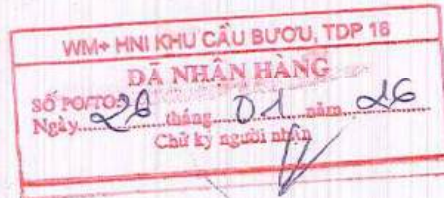 WM+ HNI KHU CẦU BƯƠU, TDP 16
ĐÃ NHẬN HÀNG
SỐ PO/TO
Ngày 28 tháng 01 năm 26
Chữ ký người nhận